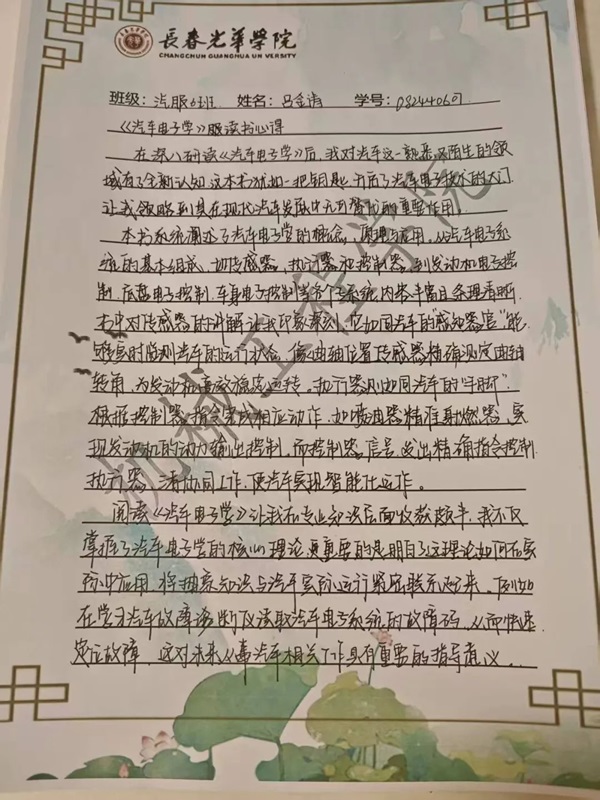 長春光華學院
CHANGCHUN GUANGHUA UNIVERSITY
班级：汽服 班 姓名： 学号：
《汽车电子学》 读书心得
在深入研读《汽车电子学》后，我对汽车这一熟悉又陌生的领
域有了全新认知，这本书犹如一把钥匙，开启了汽车电子技术的大门，
让我领略到其在现代汽车发展中无可替代的重要作用。
本书系统阐述了汽车电子学的概念、原理与应用。从汽车电子系
统的基本组成、 传感器、执行器和控制器，到发动机电子控
制、底盘电子控制、车身电子控制等各个子系统，内容丰富且条理清晰。
书中对传感器的讲解让我印象深刻，它如同汽车的“感知器官”，能
够实时监测汽车的运行状态，像曲轴位置传感器精确测定曲轴
转角，为发动机 运转。执行器则如同汽车的“手脚”，
根据控制器指令完成相应动作，如喷油器精准 ，实
现发动机的动力输出控制，而控制器 信号，发出精确指令控制
执行器， 协同工作，使汽车实现智能化运作。
阅读《汽车电子学》让我在专业知识层面收获颇丰，我不仅
掌握了汽车电子学的核心理论，更重要的是明白了这理论如何在实
际中应用，将抽象知识与汽车实际运行紧密联系起来。例如
在学习汽车故障诊断仪读取汽车电子系统的故障码，从而快速
定位故障，这对未来从事汽车相关工作具有重要的指导意义...
机械工程学院